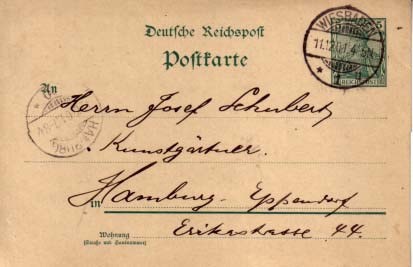 Deutsche Reichspost
Postkarte
WIESBADEN
An
Herrn Josef Schubert
Kunstgärtner.
in Hamburg-Eppendorf
Wohnung
(Straße und Hausnummer)
Erikastrasse 44.